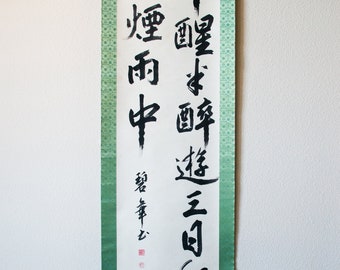 醒半醉遊三日
煙雨中
碧 書